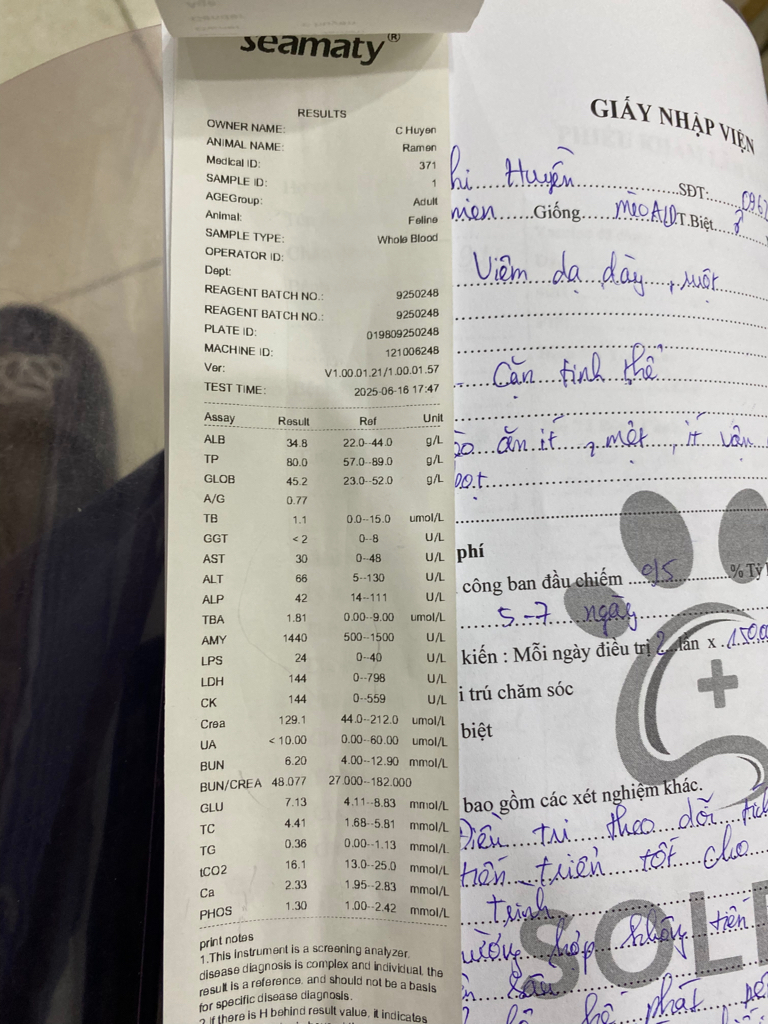 seamaty®
RESULTS
OWNER NAME: C Huyen
ANIMAL NAME: Ramen
Medical ID: 371
SAMPLE ID: 1
AGEGroup: Adult
Animal: Feline
SAMPLE TYPE: Whole Blood
OPERATOR ID:
Dept:
REAGENT BATCH NO.: 9250248
REAGENT BATCH NO.: 9250248
PLATE ID: 019809250248
MACHINE ID: 121006248
Ver: V1.00.01.21/1.00.01.57
TEST TIME: 2025-06-16 17:47
Assay Result Ref Unit
ALB 34.8 22.0--44.0 g/L
TP 80.0 57.0--89.0 g/L
GLOB 45.2 23.0--52.0 g/L
A/G 0.77
TB 1.1 0.0--15.0 umol/L
GGT <2 0--8 U/L
AST 30 0--48 U/L
ALT 66 5--130 U/L
ALP 42 14--111 U/L
TBA 1.81 0.00--9.00 umol/L
AMY 1440 500--1500 U/L
LPS 24 0--40 U/L
LDH 144 0--798 U/L
CK 144 0--559 U/L
Crea 129.1 44.0--212.0 umol/L
UA <10.00 0.00--60.00 umol/L
BUN 6.20 4.00--12.90 mmol/L
BUN/CREA 48.077 27.000--182.000
GLU 7.13 4.11--8.83 mmol/L
TC 4.41 1.68--5.81 mmol/L
TG 0.36 0.00--1.13 mmol/L
tCO2 16.1 13.0--25.0 mmol/L
Ca 2.33 1.95--2.83 mmol/L
PHOS 1.30 1.00--2.42 mmol/L
print notes
1.This instrument is a screening analyzer,
disease diagnosis is complex and individual, the
result is a reference, and should not be a basis
for specific disease diagnosis.
2.If there is H behind result value, it indicates
GIẤY NHẬP VIỆN
Huyền SĐT: 0962
Giống mèo ALD T.Biệt ♂
Viêm dạ dày, ruột
Căn tinh thể
ăn ít, mệt, ít vận
phí
công ban đầu chiếm 95 % Tỷ l
5-7 ngày
kiến : Mỗi ngày điều trị 2 lần x 150.0
i trú chăm sóc
biệt
bao gồm các xét nghiệm khác.
Điều trị theo dõi
tiến triển tốt cho
trình
hợp không tiến
phát
SOLE